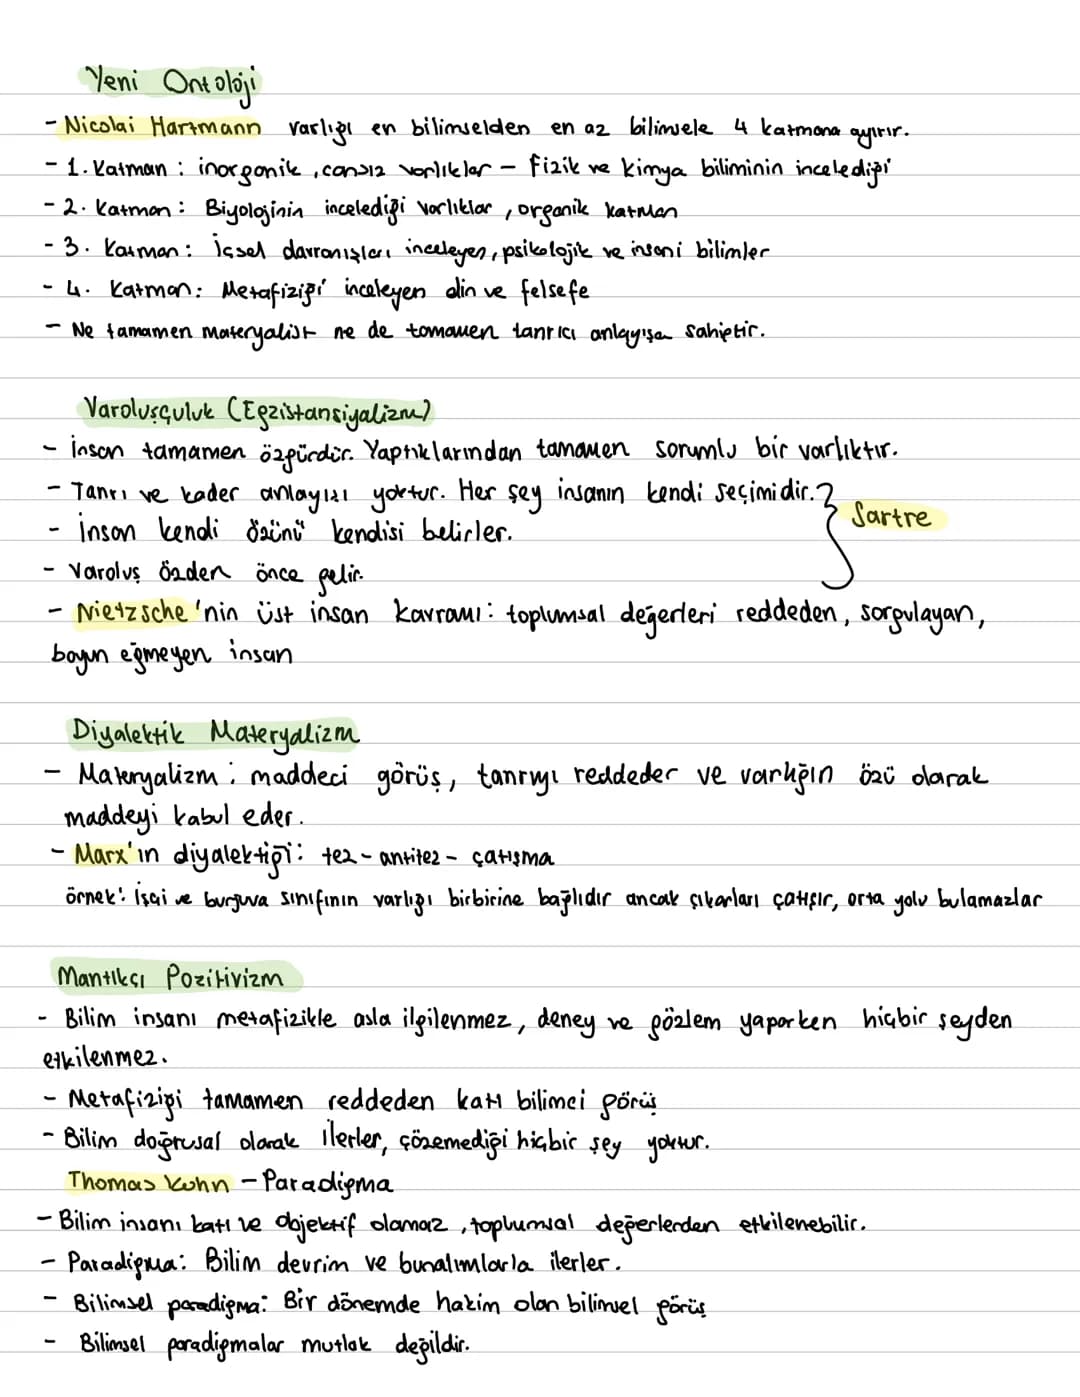 Yeni Ontoloji
- Nicolai Hartmann varlığı en bilimselden en az bilimsele 4 katmana ayırır.
- 1. Katman : inorganik, cansız varlıklar - fizik ve kimya biliminin incelediği
- 2. Katman : Biyolojinin incelediği varlıklar, organik katman
- 3. Katman : İçsel davranışları inceleyen, psikolojik ve insani bilimler
- 4. Katman : Metafiziği inceleyen din ve felsefe
- Ne tamamen materyalist ne de tamamen tanrıcı anlayışa sahiptir.
Varoluşçuluk (Egzistansiyalizm)
- İnsan tamamen özgürdür. Yaptıklarından tamamen sorumlu bir varlıktır.
- Tanrı ve kader anlayışı yoktur. Her şey insanın kendi seçimidir.
- İnsan kendi özünü kendisi belirler.
- Varoluş özden önce gelir.
} Sartre
- Nietzsche'nin üst insan kavramı: toplumsal değerleri reddeden, sorgulayan,
boyun eğmeyen insan
Diyalektik Materyalizm
- Materyalizm : maddeci görüş, tanrıyı reddeder ve varlığın özü olarak
maddeyi kabul eder.
- Marx'ın diyalektiği: tez - antitez - çatışma
örnek: İşçi ve burjuva sınıfının varlığı birbirine bağlıdır ancak çıkarları çatışır, orta yolu bulamazlar
Mantıkçı Pozitivizm
- Bilim insanı metafizikle asla ilgilenmez, deney ve gözlem yaparken hiçbir şeyden
etkilenmez.
- Metafiziği tamamen reddeden katı bilimci görüş
- Bilim doğrusal olarak ilerler, çözemediği hiçbir şey yoktur.
Thomas Kuhn - Paradigma
- Bilim insanı katı ve objektif olamaz, toplumsal değerlerden etkilenebilir.
- Paradigma: Bilim devrim ve bunalımlarla ilerler.
- Bilimsel paradigma: Bir dönemde hakim olan bilimsel görüş
- Bilimsel paradigmalar mutlak değildir.